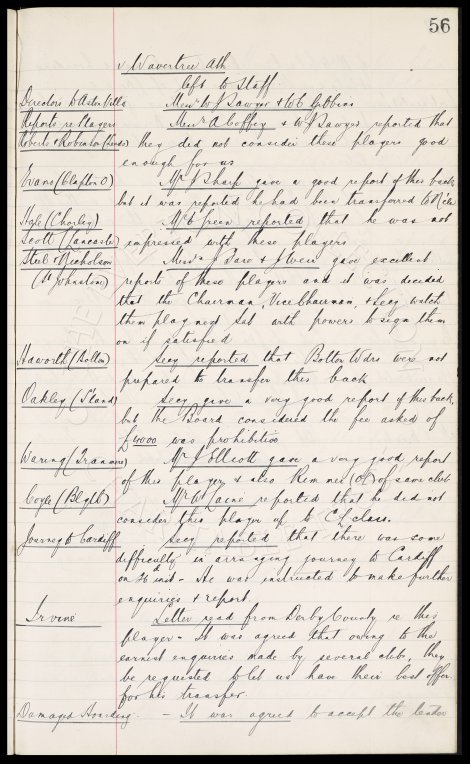 56
v Wavertree Ath
left to Staff
Directors to Aston Villa Messrs W J Sawyer & W C Gibbins
Reports re Players Messrs A Coffey & W J Sawyer reported that
Roberts & Robinson (Leeds) they did not consider these players good
enough for us
Evans (Clapton O) Mr J Sharp gave a good report of this back
but it was reported he had been transferred to
Hale (Chorley) Mr E Green reported that he was not
Scott (Lancaster) impressed with these players
Steel & Nicholson Messrs J Fare & J Weir gave excellent
(St Johnstone) reports of these players and it was decided
that the Chairman, Vice Chairman, & Secy watch
them play next Sat with powers to sign them
on if satisfied
Haworth (Bolton) Secy reported that Bolton Wdrs were not
prepared to transfer this back
Oakley (S'land) Secy gave a very good report of this back,
but the Board considered the fee asked of
£4000 was prohibitive
Waring (Tranmere) Mr J Elliott gave a very good report
of this player & also Rimmer (OL) of same club
Coyle (Blyth) Mr W Racine reported that he did not
consider this player up to CL class.
Journey to Cardiff Secy reported that there was some
difficulty in arranging journey to Cardiff
on 26 inst - He was instructed to make further
enquiries & report.
Irvine Letter read from Derby County re this
player - It was agreed that owing to the
earnest enquiries made by several clubs, they
be requested to let us have their best offer
for his transfer.
Damaged Hoarding - It was agreed to accept the tender